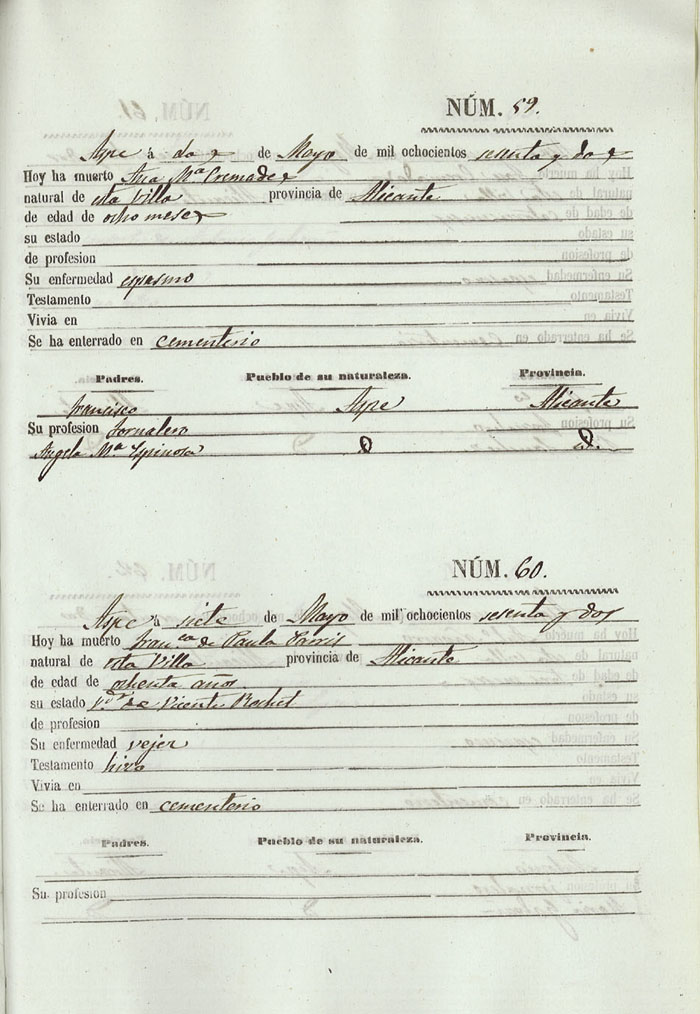 NÚM. 59.
Aspe á dos de Mayo de mil ochocientos sesenta y dos
Hoy ha muerto Ana Mª Cremades
natural de esta Villa provincia de Alicante
de edad de ocho meses
su estado
de profesion
Su enfermedad espasmo
Testamento
Vivia en
Se ha enterrado en cementerio
Padres. Pueblo de su naturaleza. Provincia.
Francisco Aspe Alicante
Su profesion Jornalero
Angela Mª Espinosa
NÚM. 60.
Aspe á siete de Mayo de mil ochocientos sesenta y dos
Hoy ha muerto Franca de Paula
natural de esta Villa provincia de Alicante
de edad de ochenta años
su estado Vda de Vicente
de profesion
Su enfermedad vejez
Testamento hizo
Vivia en
Se ha enterrado en cementerio
Padres. Pueblo de su naturaleza. Provincia.
Su profesion